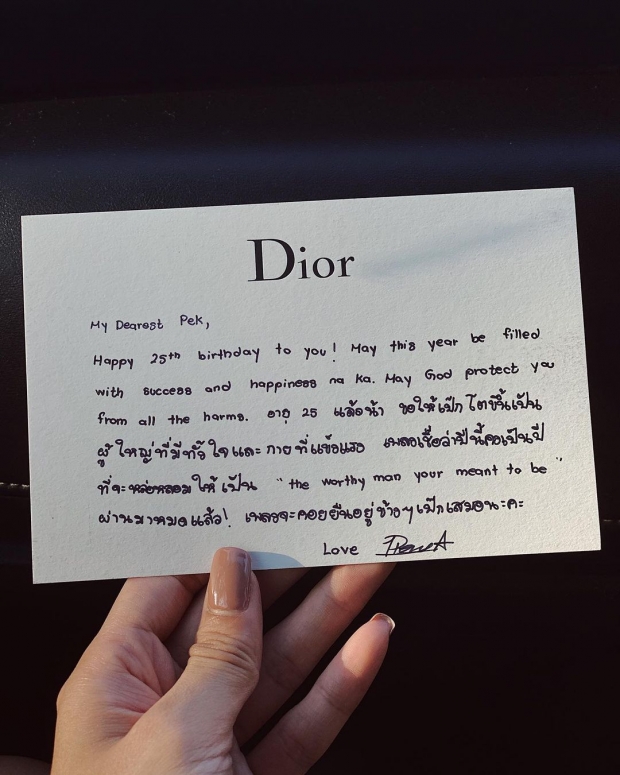 Dior
My Dearest Pek,
Happy 25th birthday to you! May this year be filled
with success and happiness na ka. May God protect you
from all the harms. อายุ 25 แล้วน้า ขอให้เป๊ก โตขึ้นเป็น
ผู้ใหญ่ที่มีทั้งใจและ กายที่แข็งแรง เพลงเชื่อว่าปีนี้คงเป็นปี
ที่จะหล่อหลอมให้ เป็น "the worthy man your meant to be"
ผ่านมาหมดแล้ว! เพลงจะคอยยืนอยู่ข้างๆเป๊กเสมอนะคะ
Love